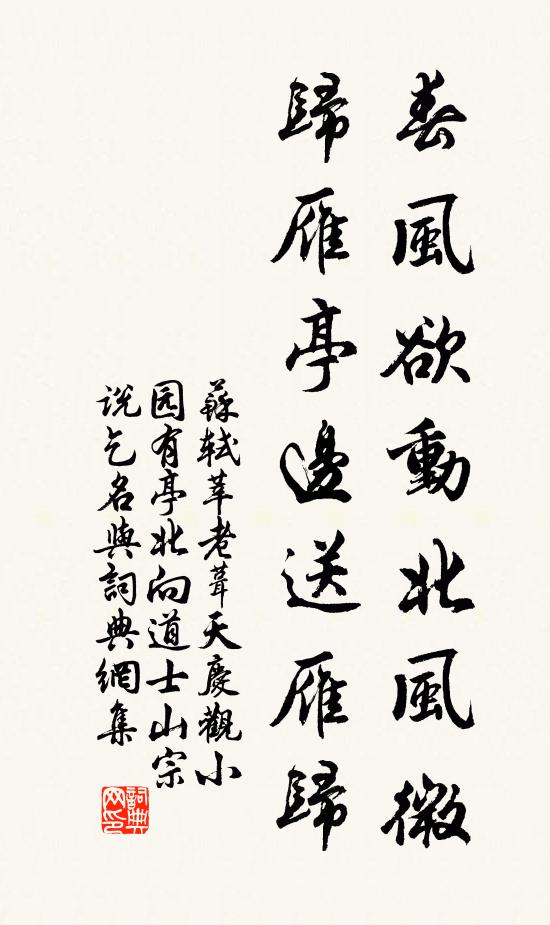 春風欲動北風微
歸雁亭邊送雁歸
蘇軾莘老葺天慶觀小
园有亭北向道士山宗
说乞名與詞典網集
詞典
网印